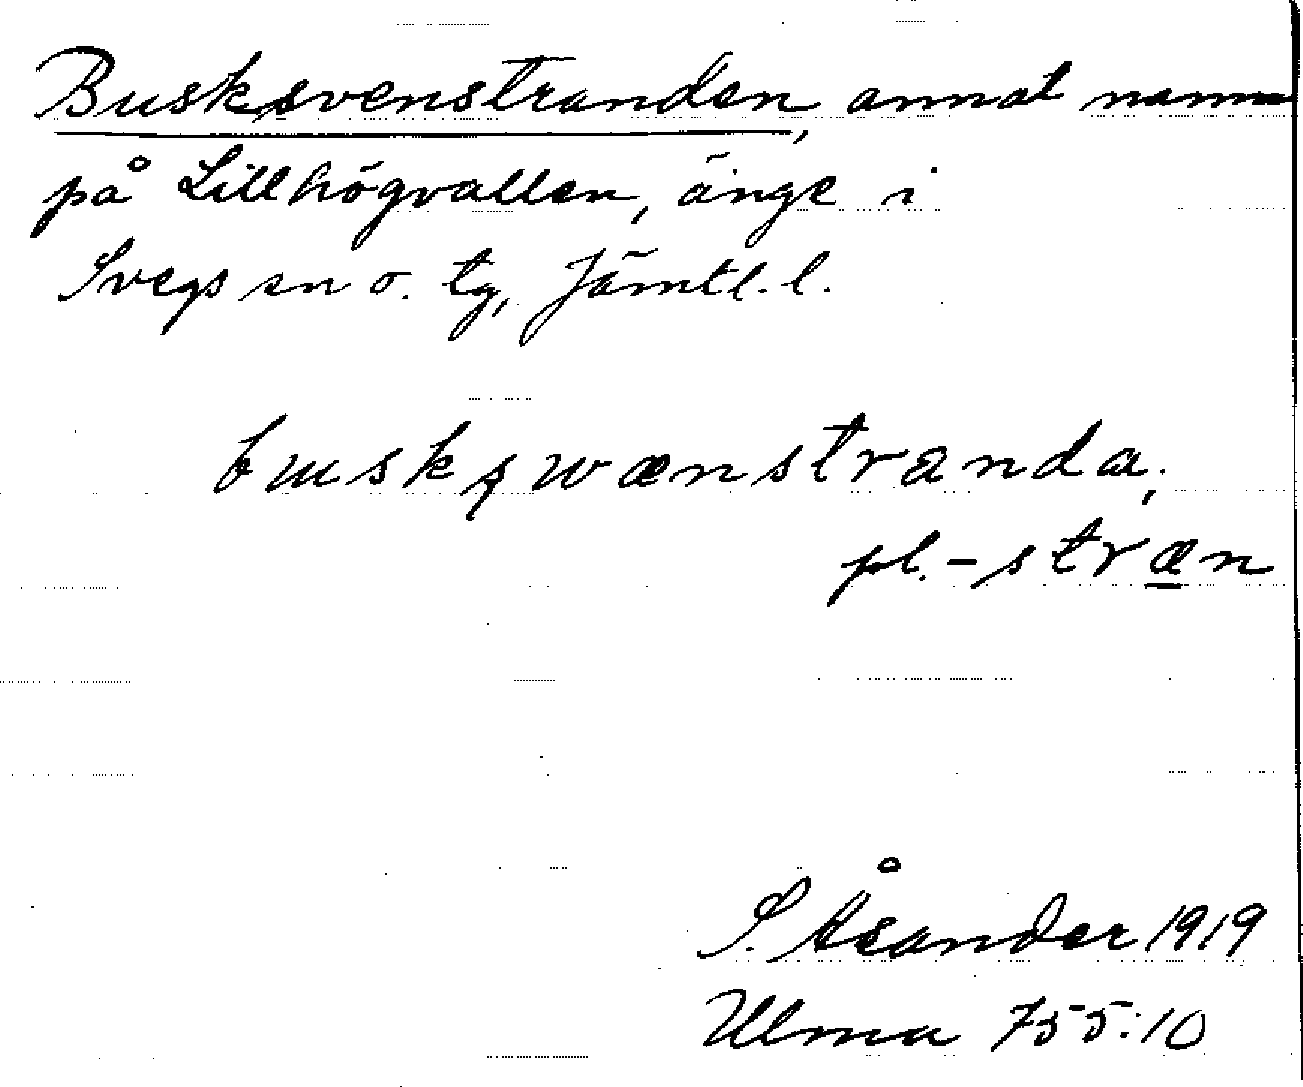 Busksvenstranden, annat namn
på Lillhögvallen, änge i
Svegs sn o. tg, Jämtl. l.
buskswænstranda,
pl. -stræn
S. Åsander 1919
Ulma 755:10